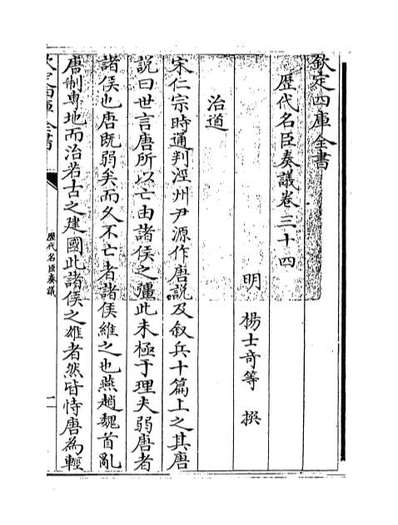 欽定四庫全書
歷代名臣奏議卷三十四
明 楊士奇等 撰
治道
宋仁宗時通判涇州尹源作唐説及叙兵十篇上之其唐
説曰世言唐所以亡由諸侯之彊此未極于理夫弱唐者
諸侯也唐既弱矣而久不亡者諸侯維之也燕趙魏首亂
唐制專地而治若古之建國此諸侯之雄者然皆恃唐為輕
欽定四庫全書
歷代名臣奏議
一